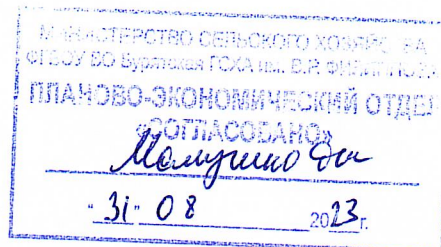 МИНИСТЕРСТВО СЕЛЬСКОГО ХОЗЯЙСТВА
ФГБОУ ВО Бурятская ГСХА им. В.Р. ФИЛИППОВА
ПЛАНОВО-ЭКОНОМИЧЕСКИЙ ОТДЕЛ
«СОГЛАСОВАНО»
"31" 08 2023г.